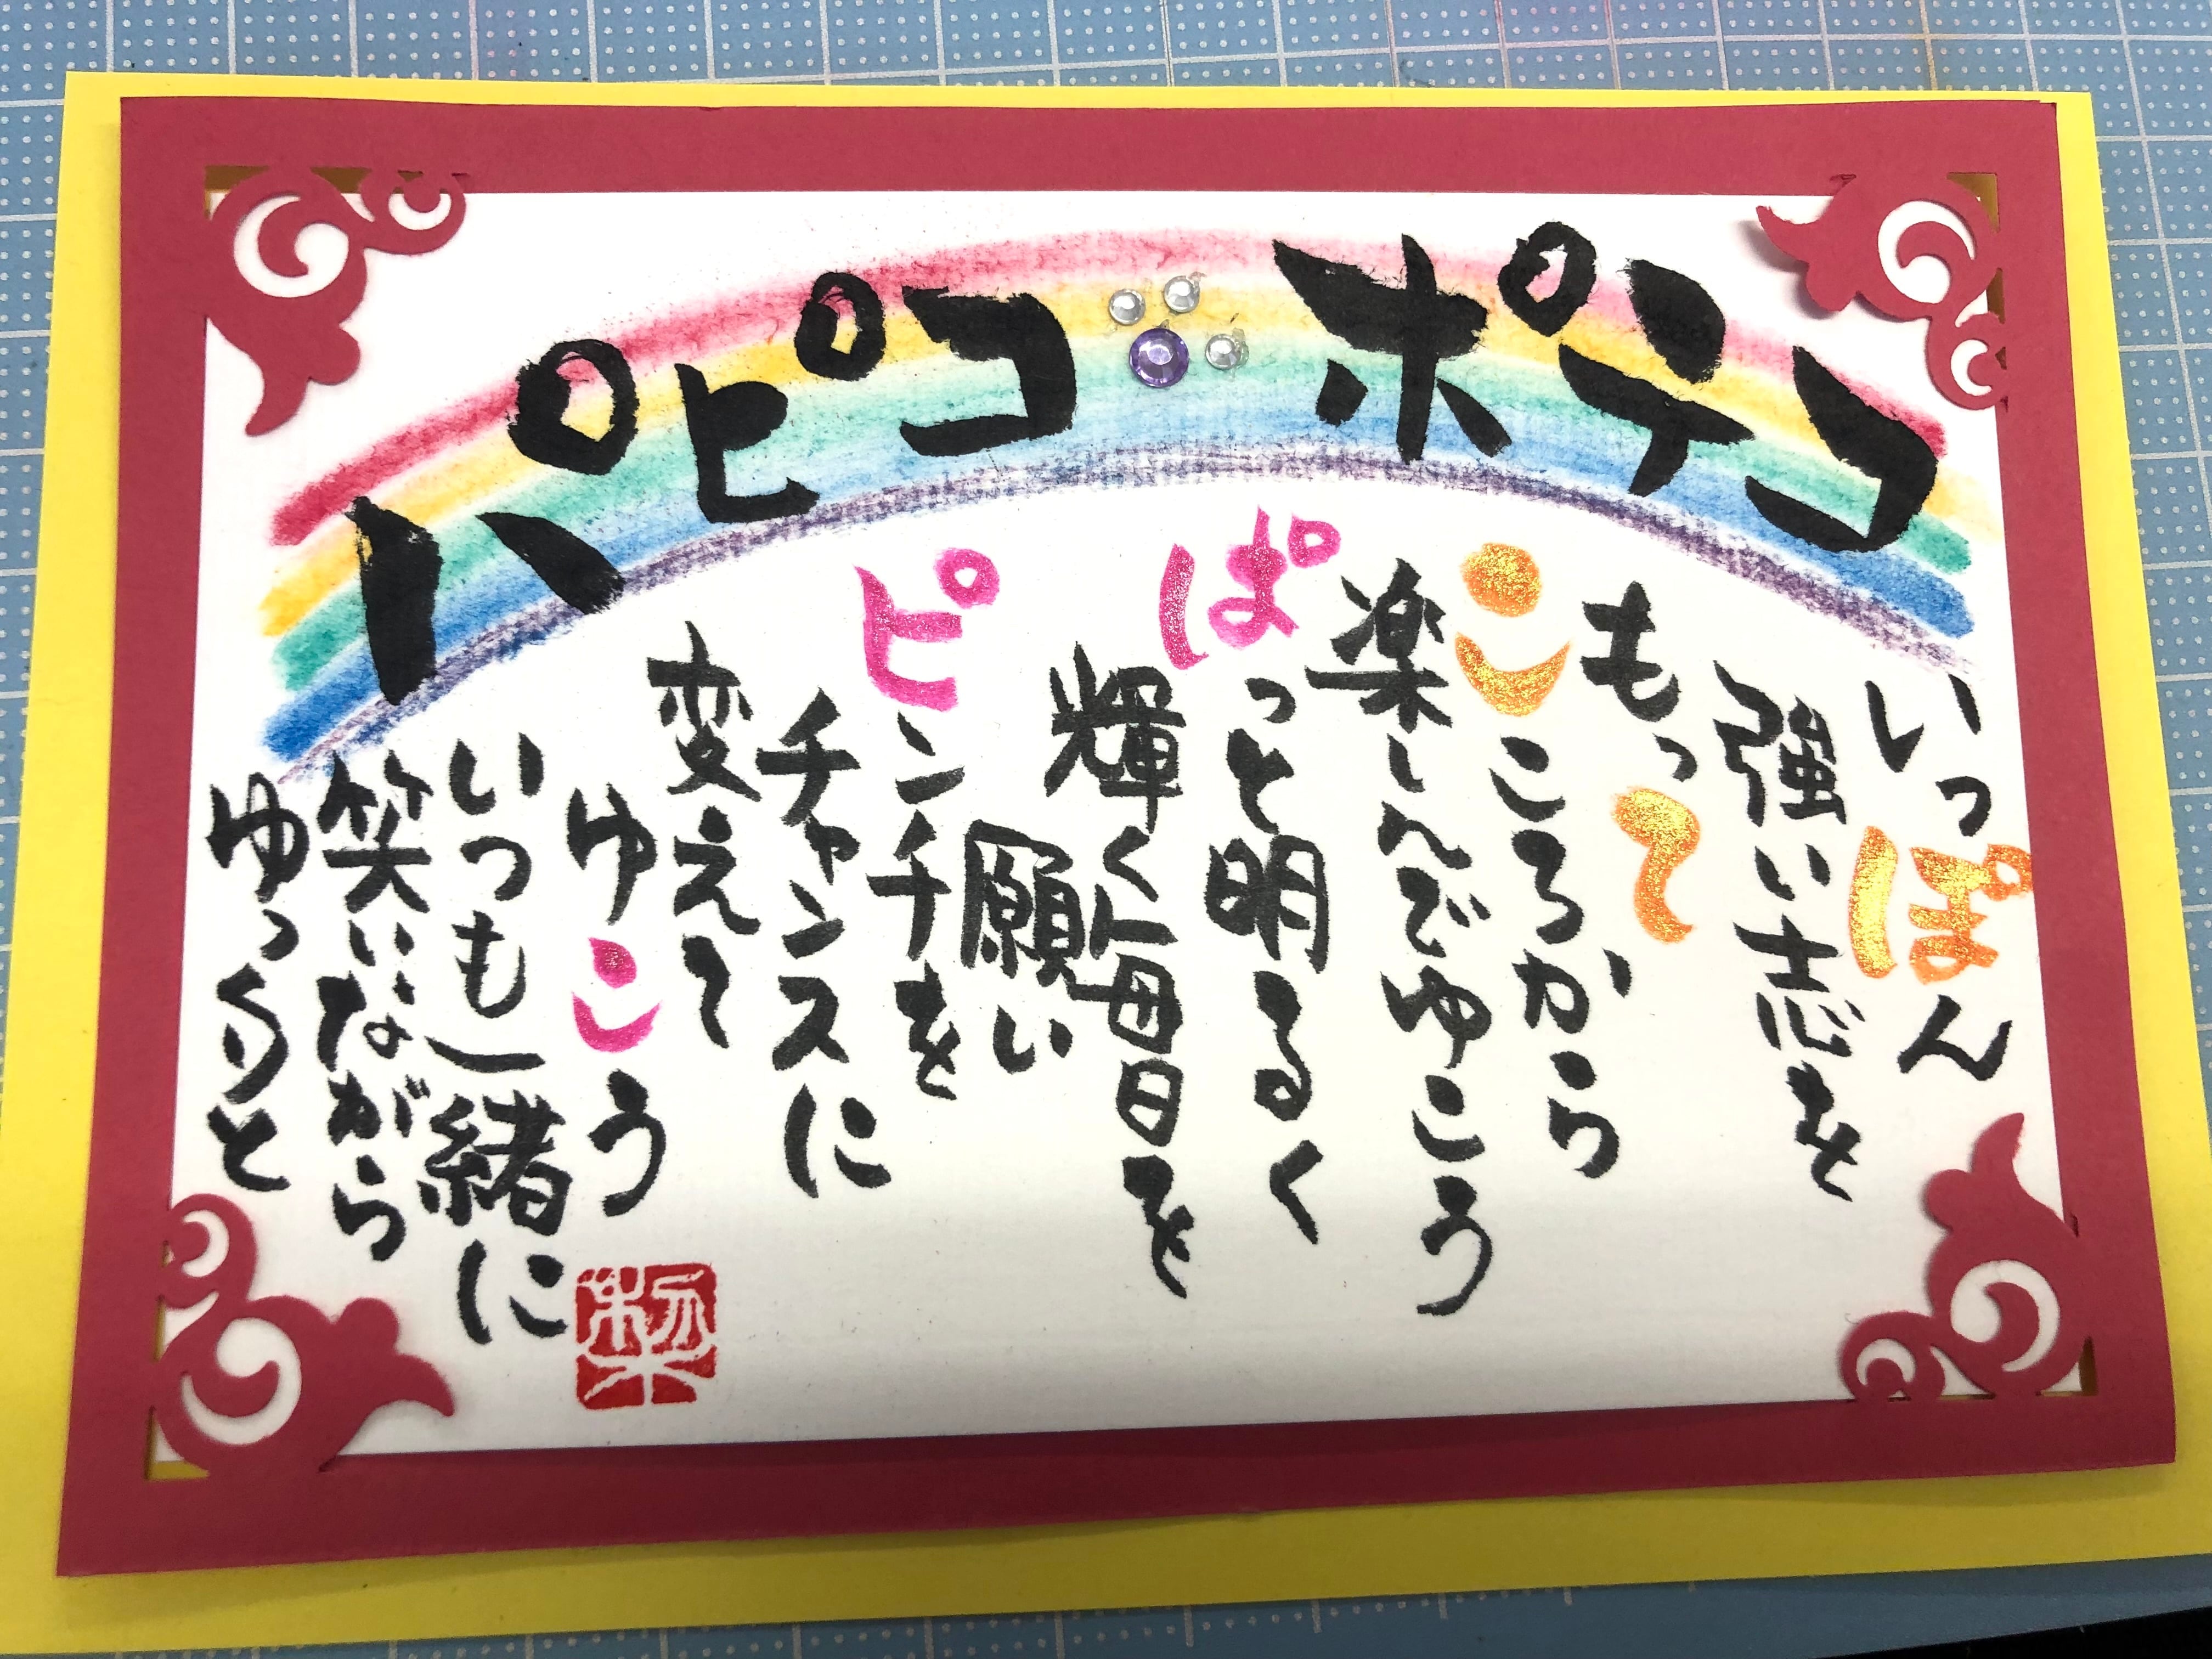 パピコ ポテコ
いっぽん
強い志を
もって
こころから
楽しんでゆこう
ぱっと明るく
輝く毎日を
願い
ピンチを
チャンスに
変えて
ゆこう
いつも一緒に
笑いながら
ゆっくりと